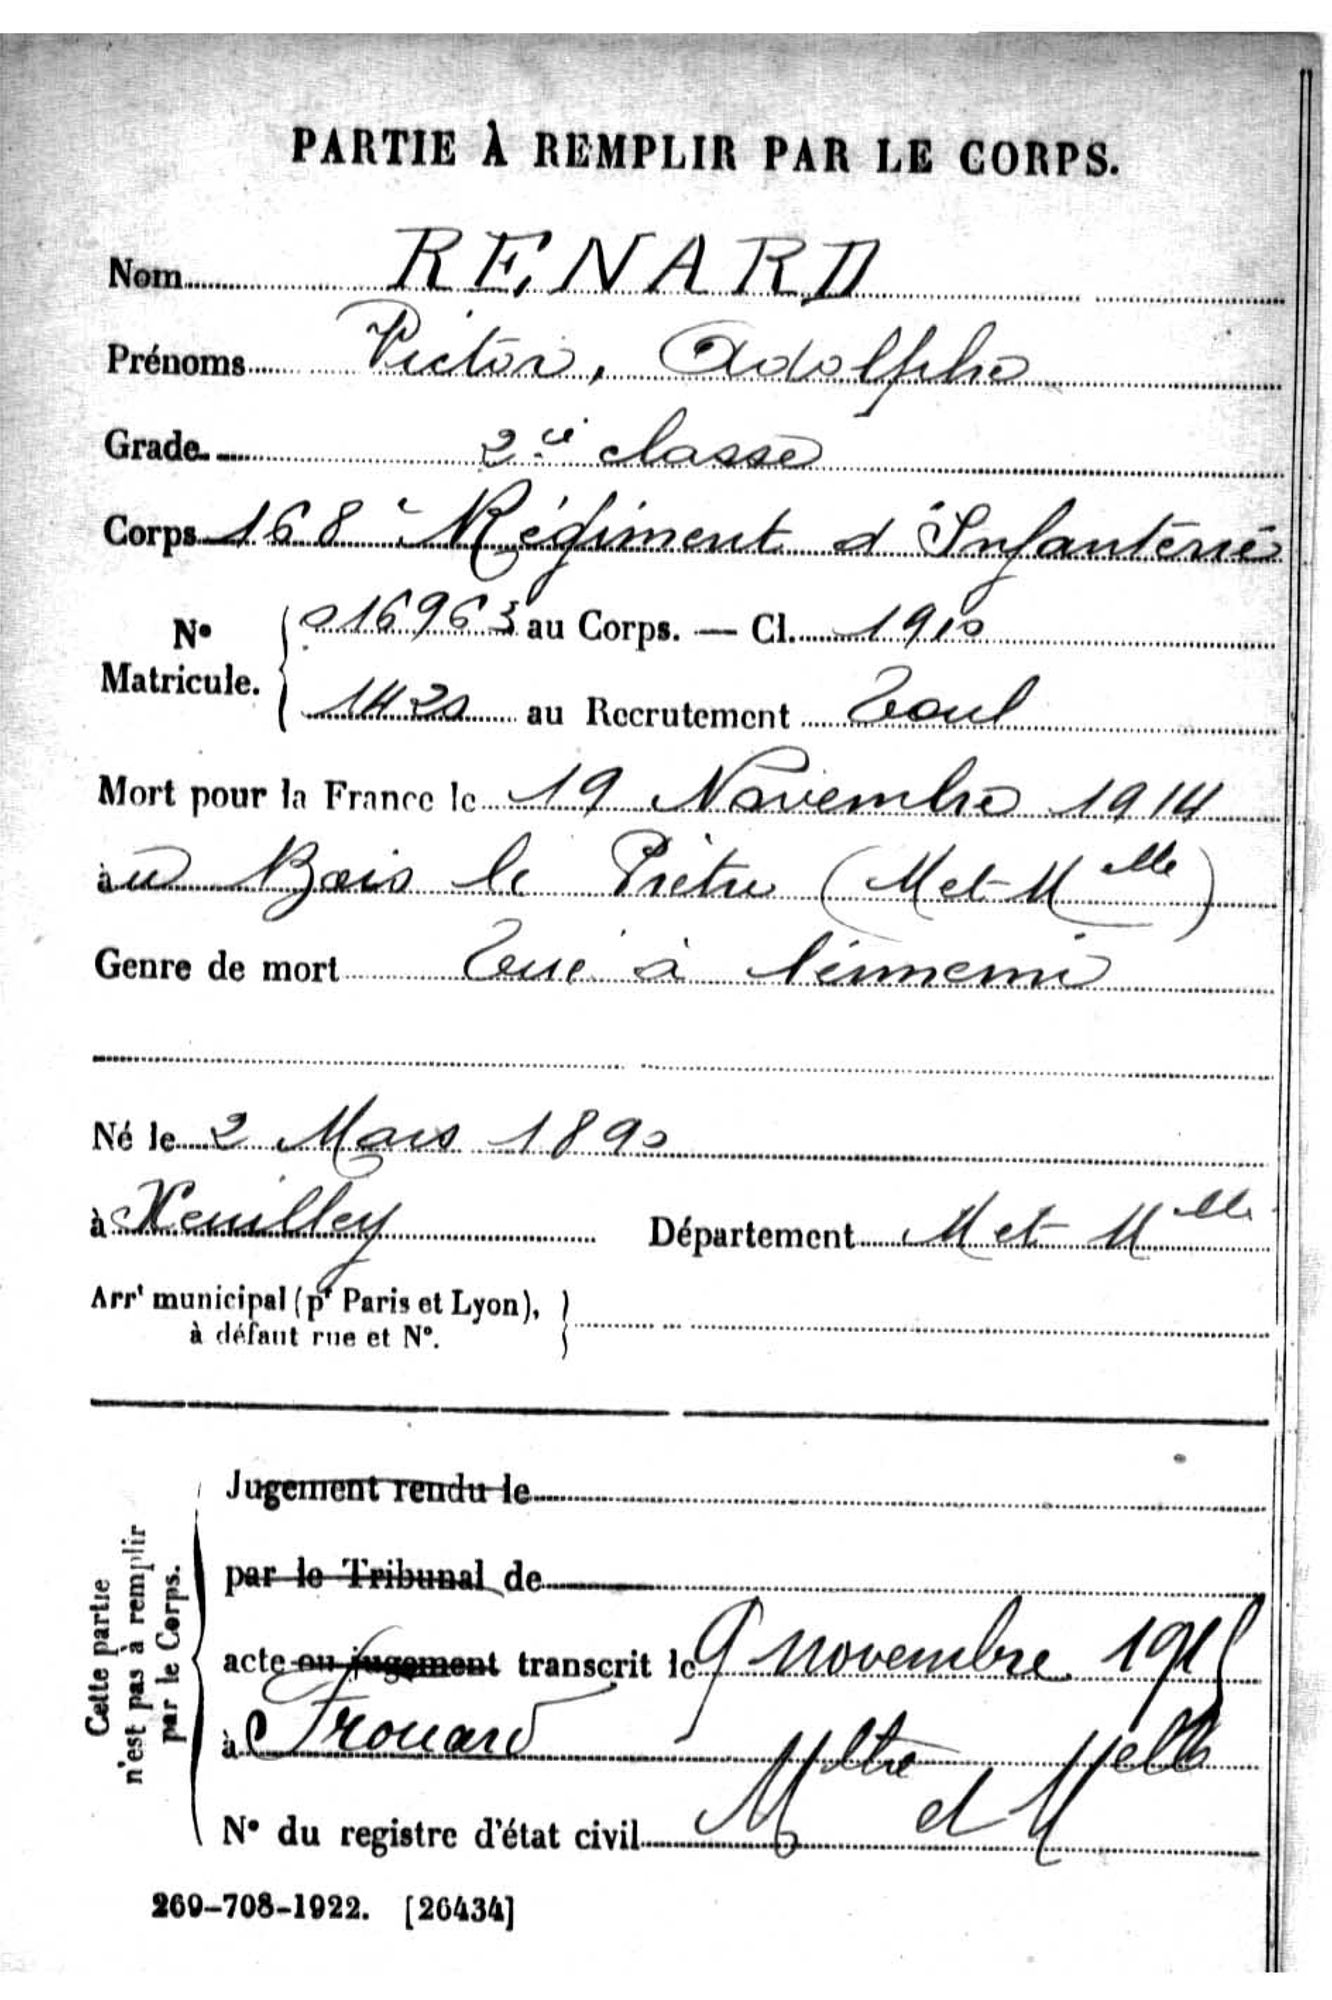 PARTIE À REMPLIR PAR LE CORPS.
Nom RENARD
Prénoms Victor, Adolphe
Grade 2e classe
Corps 168e Régiment d'Infanterie
N° Matricule. 016963 au Corps. — Cl. 1910
1420 au Recrutement Toul
Mort pour la France le 19 Novembre 1914
au Bois le Prêtre (M et Mlle)
Genre de mort Tué à l'ennemi
Né le 2 Mars 1890
à Xeuilley Département M et Mlle
Arrt municipal (pt Paris et Lyon),
à défaut rue et N°.
Cette partie n'est pas à remplir par le Corps.
Jugement rendu le
par le Tribunal de
acte ou jugement transcrit le 9 novembre 1915
à Frouard Mthe et Melle
N° du registre d'état civil
269-708-1922. [26434]